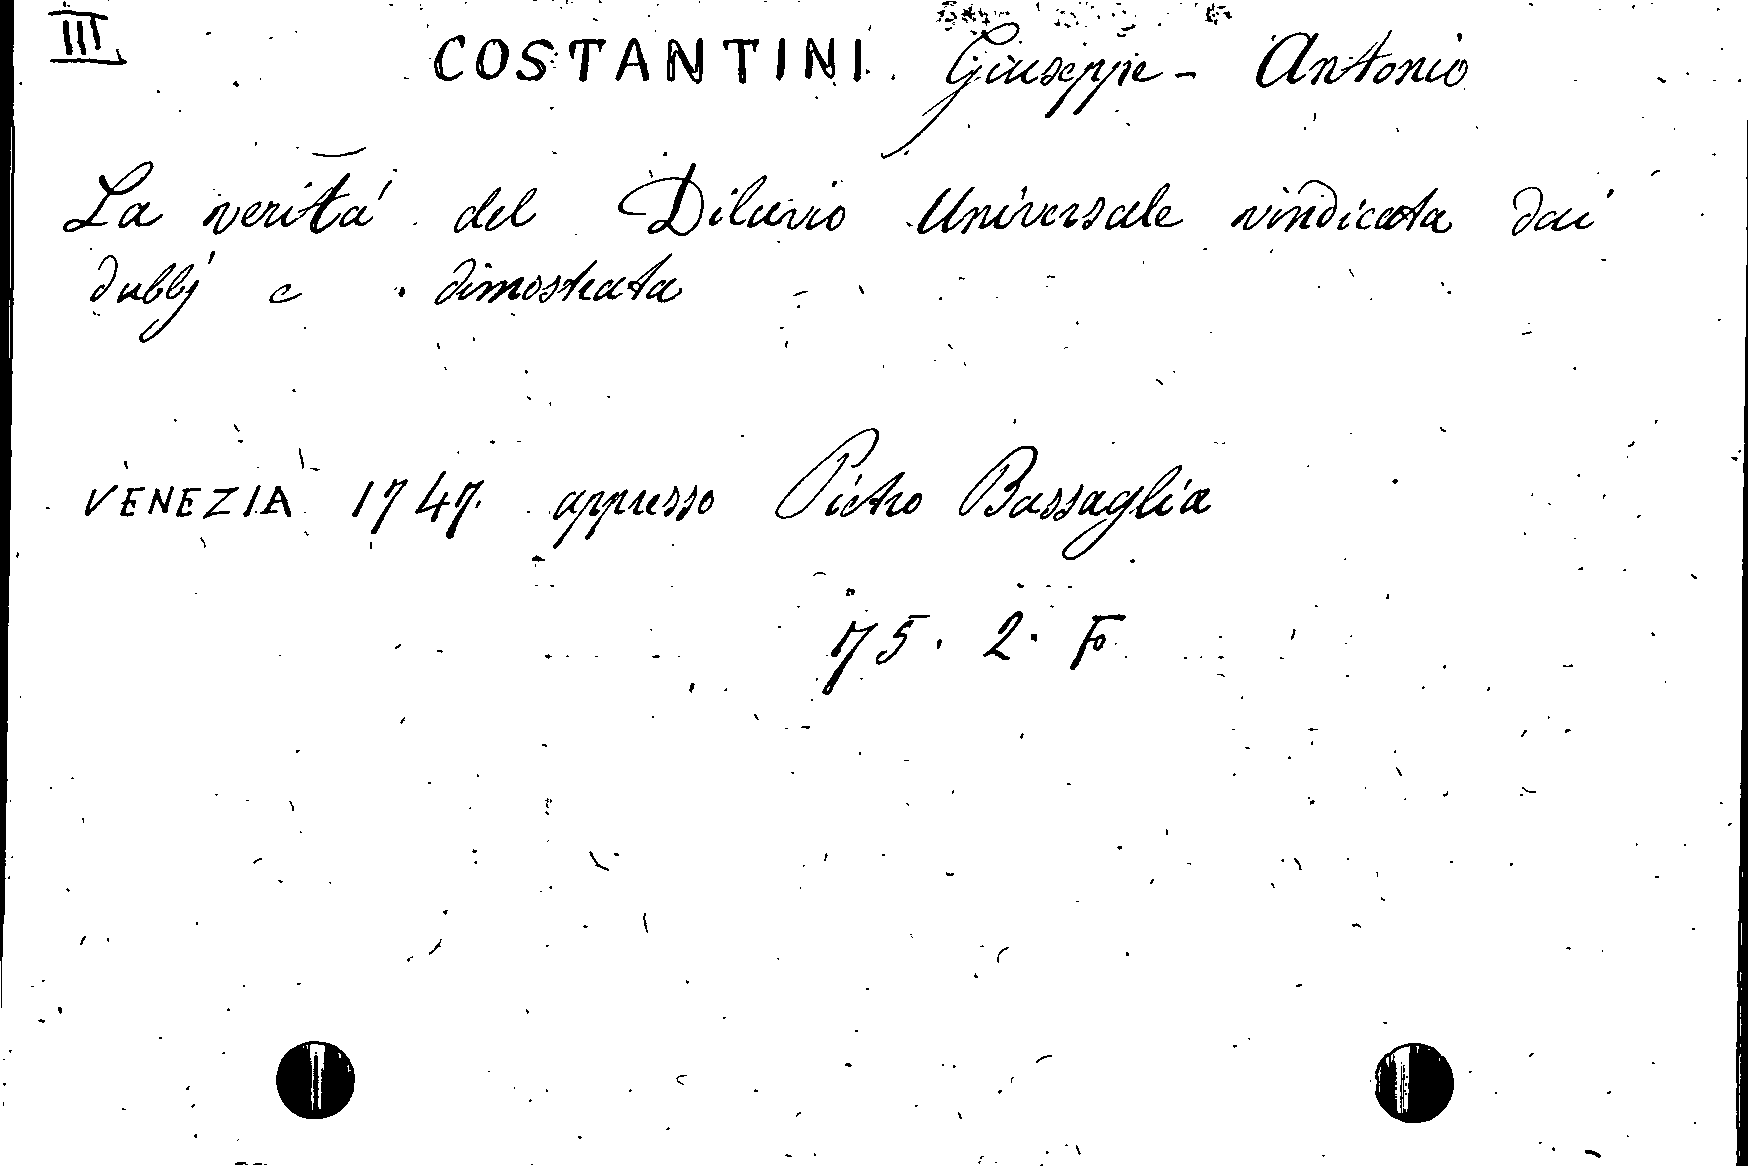 III
COSTANTINI Giuseppe - Antonio
La veritá del Diluvio Universale vindicata dai
dubbj e dimostrata
VENEZIA 1747. appresso Pietro Bassaglia
75. 2. F